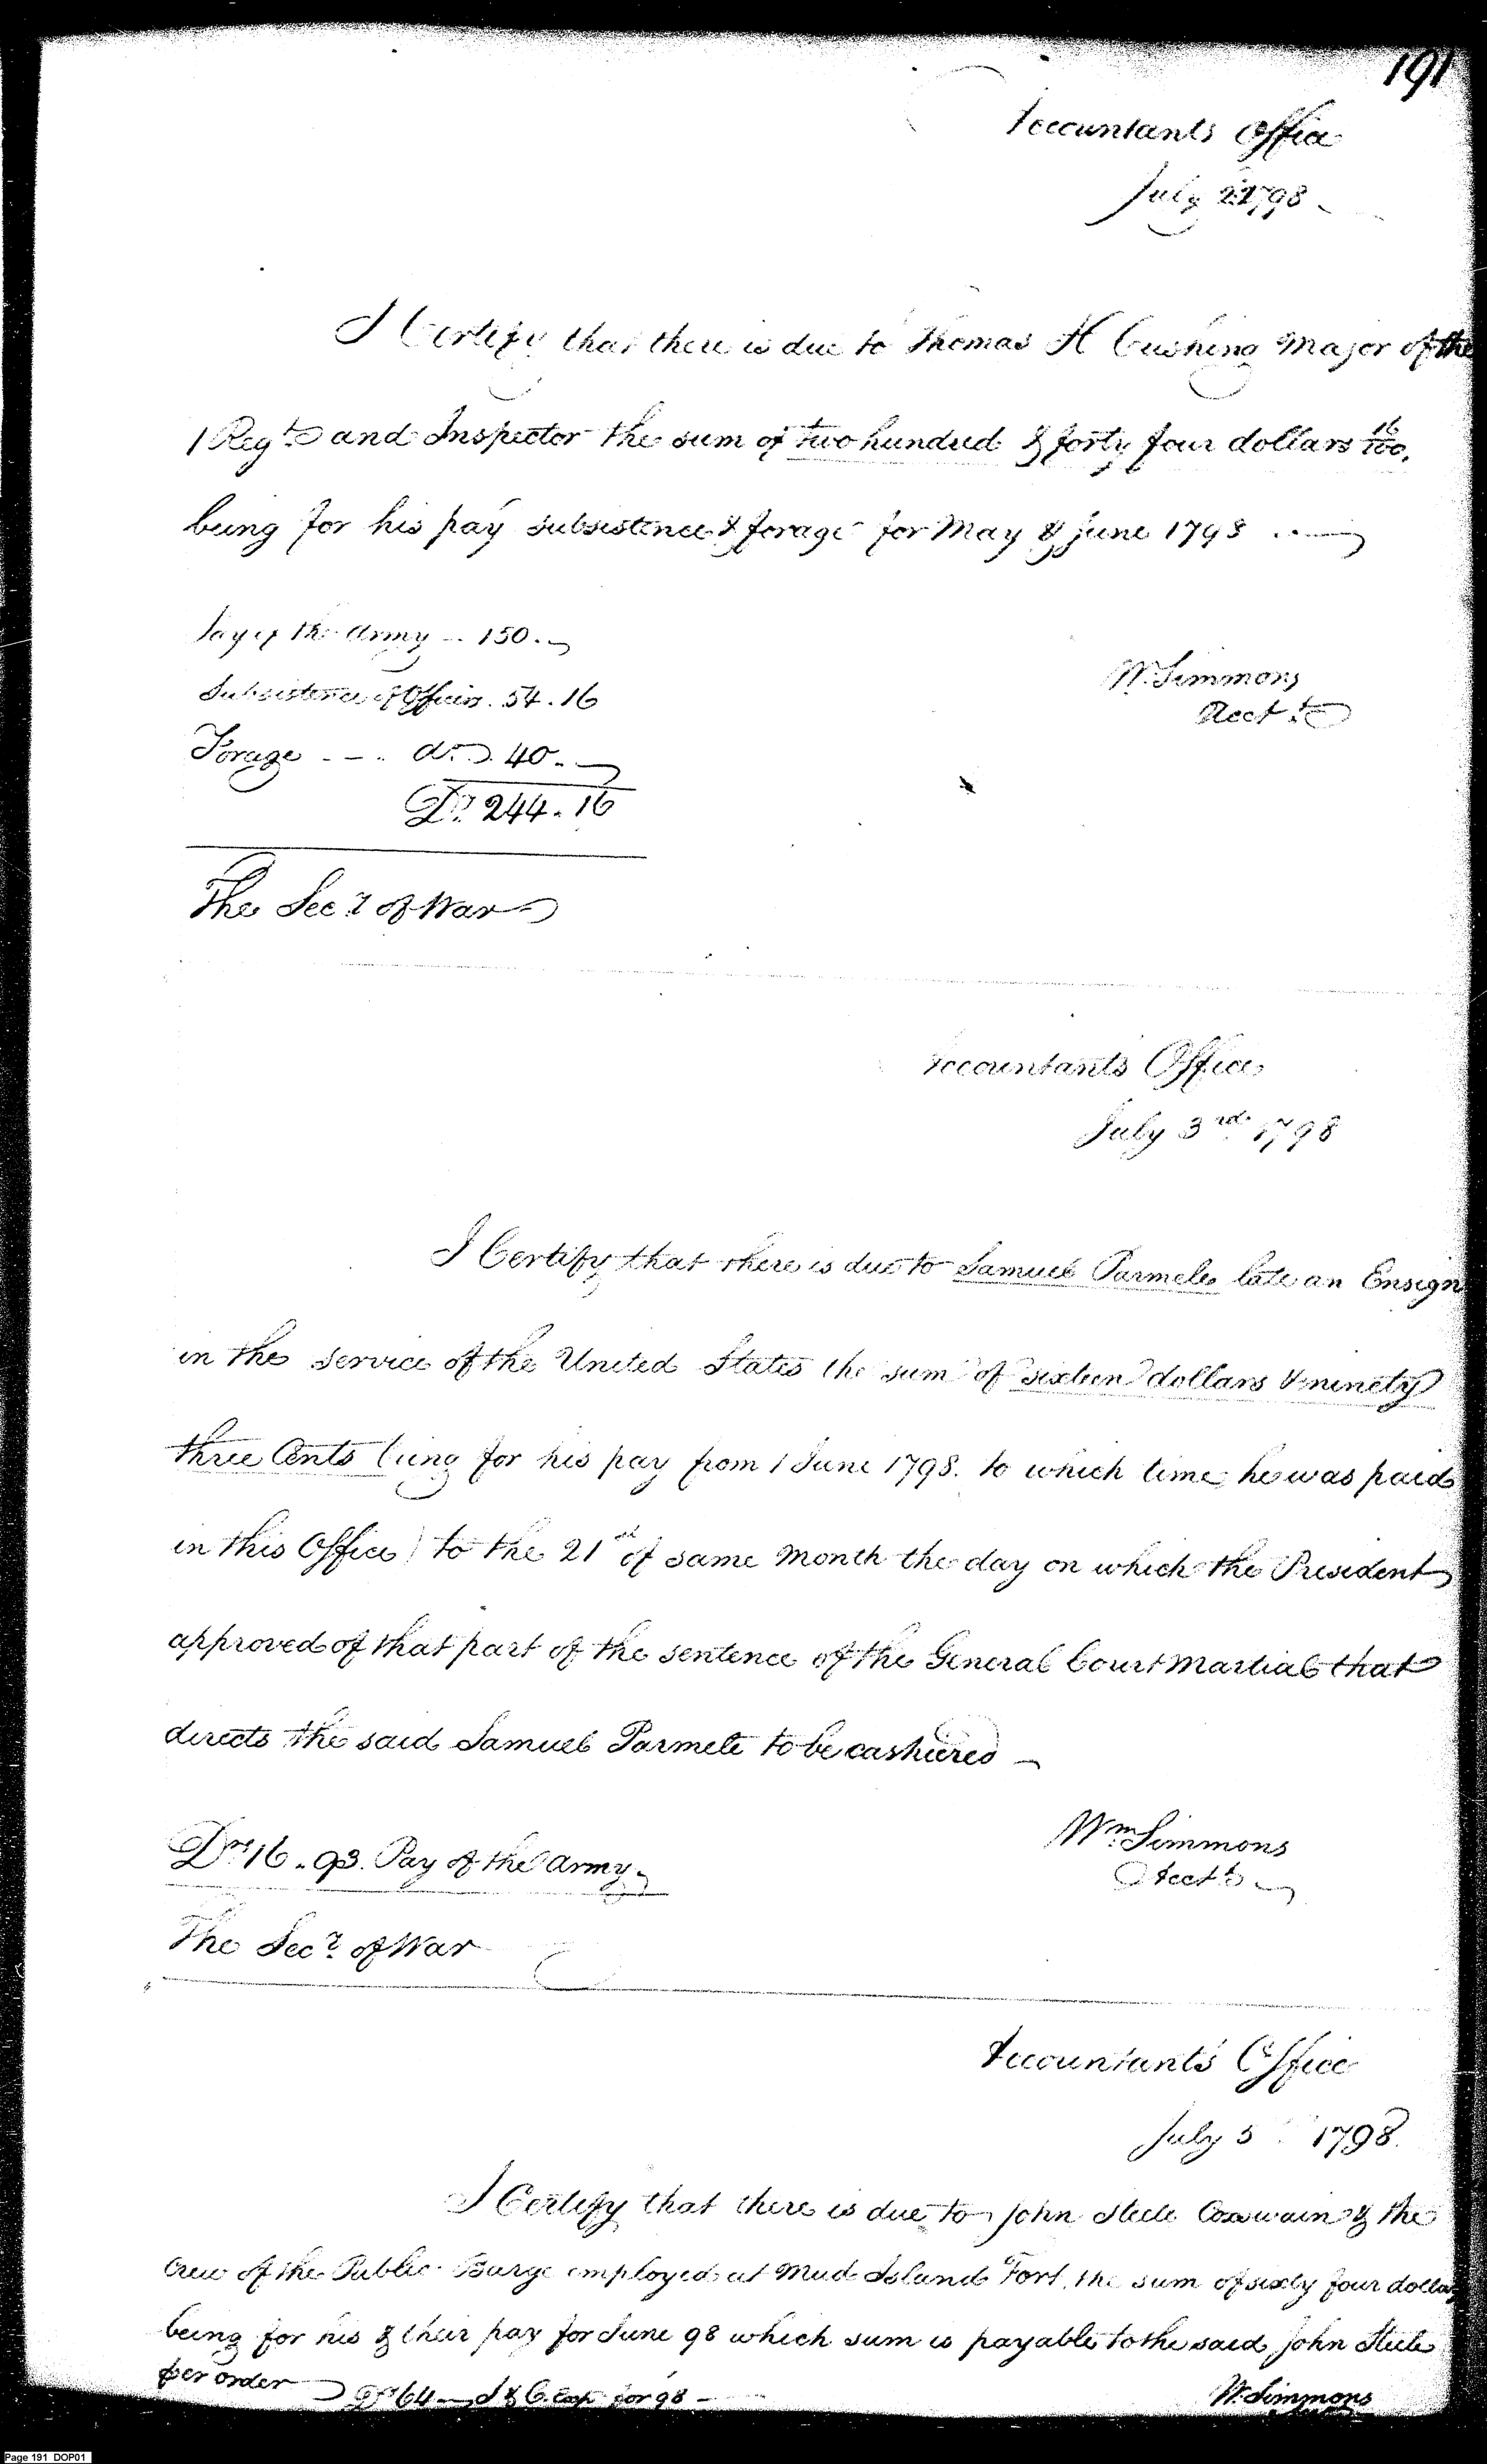 191
Accountants Office
July 2 1798
I Certify that there is due to Thomas H Cushing Major of the
1 Regt and Inspector the sum of two hundred & forty four dollars 16/100.
being for his pay subsistence & forage for May & June 1798
Pay of the Army -- 150.
Subsistence of Officers. 54.16
W. Simmons
Acct.
Forage --. do. 40.
Drs 244.16
The Secy of War
Accountants Office
July 3rd 1798
I Certify that there is due to Samuel Parmele late an Ensign
in the service of the United States the sum of sixteen dollars & ninety
three Cents being for his pay from 1 June 1798. to which time he was paid
in this Office) to the 21st of same month the day on which the President
approved of that part of the sentence of the General Court Martial that
directs the said Samuel Parmele to be cashiered
Drs 16.93. Pay of the Army
Wm Simmons
Acct
The Secy of War
Accountants Office
July 5 1798.
I Certify that there is due to John Steele Coxswain & the
Crew of the Public Barge employed at Mud Island Fort, the sum of sixty four dollars
being for his & their pay for June 98 which sum is payable to the said John Steele
per order
Drs 64 for 98
W. Simmons
Page 191 DOP01